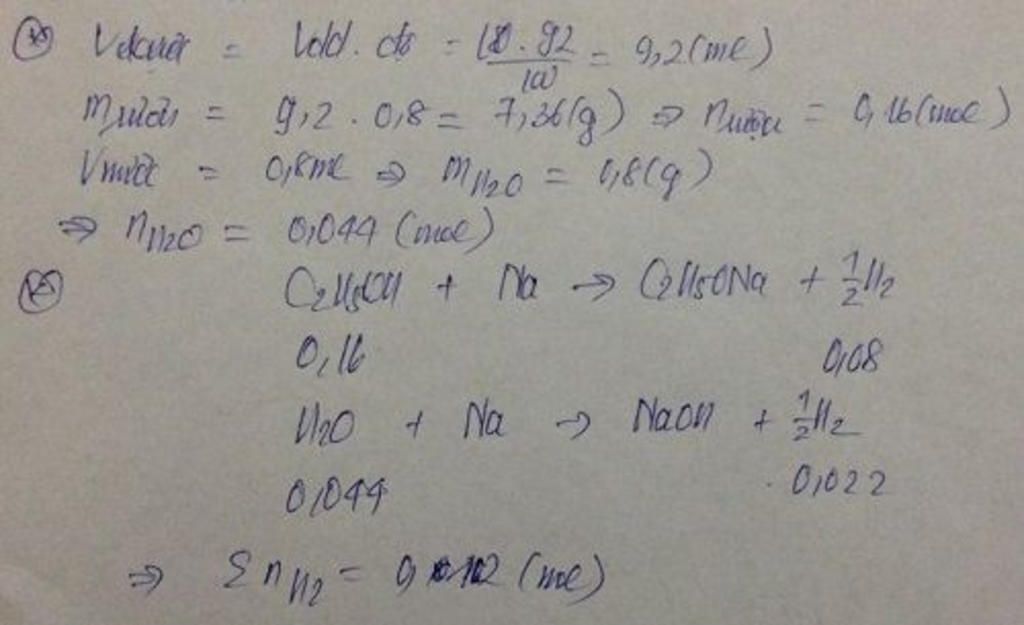 V = Vdd . = 10 . 92 / 100 = 9,2 (ml)
m = 9,2 . 0,8 = 7,36 (g) ⇒ n = 0,16 (mol)
V = 0,8ml ⇒ mH2O = 0,8 (g)
⇒ nH2O = 0,044 (mol)
C2H5OH + Na → C2H5ONa + 1/2 H2
0,16 0,08
H2O + Na → NaOH + 1/2 H2
0,044 0,022
⇒ Σ nH2 = (mol)